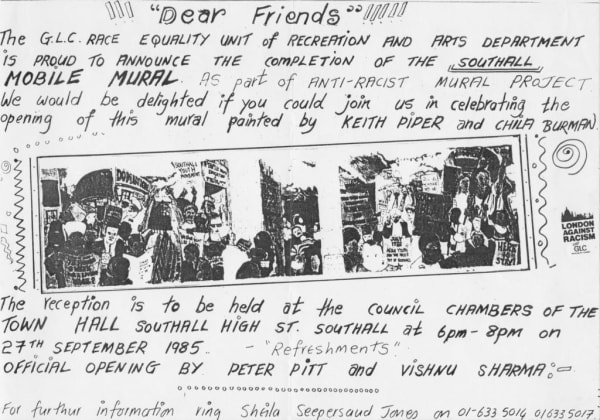 "Dear Friends"
The G.L.C. RACE EQUALITY UNIT of RECREATION AND ARTS DEPARTMENT
is PROUD TO ANNOUNCE THE COMPLETION OF THE SOUTHALL
MOBILE MURAL. AS part of ANTI-RACIST MURAL PROJECT.
We would be delighted if you could join us in celebrating the
opening of this mural painted by KEITH PIPER and CHILA BURMAN.
SOUTHALL
YOUTH
MOVEMENT
LONDON
AGAINST
RACISM
GLC
The reception is to be held at the COUNCIL CHAMBERS OF THE
TOWN HALL SOUTHALL HIGH ST. SOUTHALL at 6pm - 8pm on
27TH SEPTEMBER 1985.. - "Refreshments".
OFFICIAL OPENING BY PETER PITT and VISHNU SHARMA:-
For furthur information ring Sheila Seepersaud Jones on 01-633 5014 01 633 5017